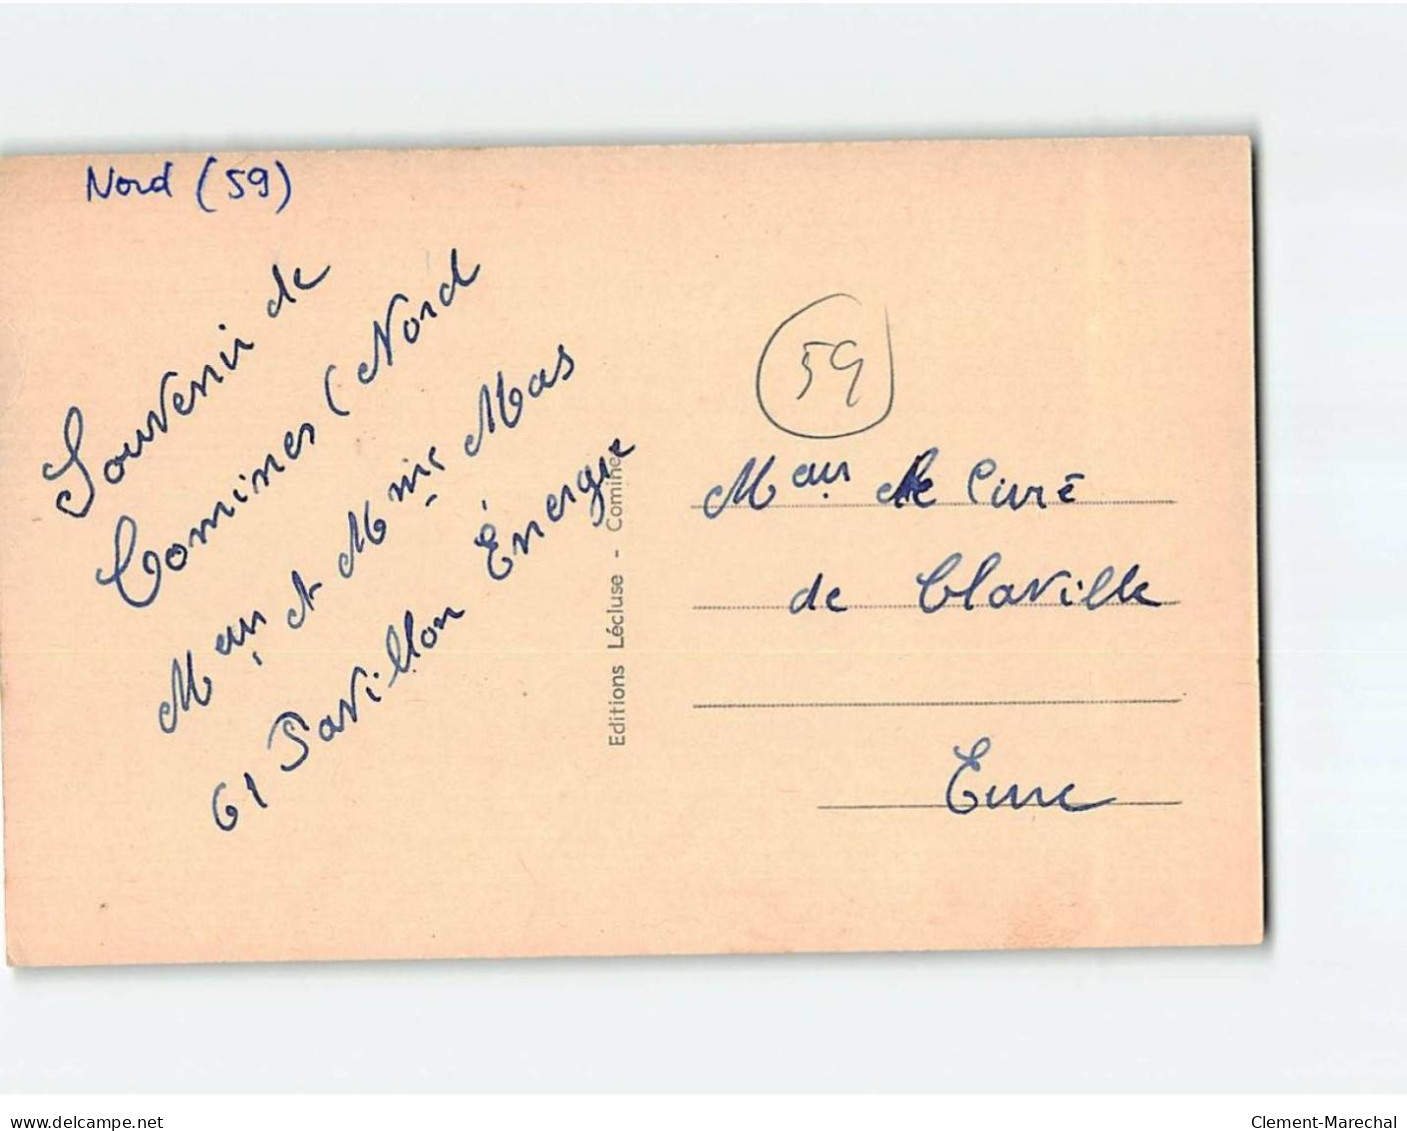 Nord (59)
Souvenir de
Comines (Nord
Mr et Mme Mas
61 Pavillon Énergie
Editions Lécluse - Comines
59
Mr le Curé
de Claville
Eure
www.delcampe.net
Clement-Marechal